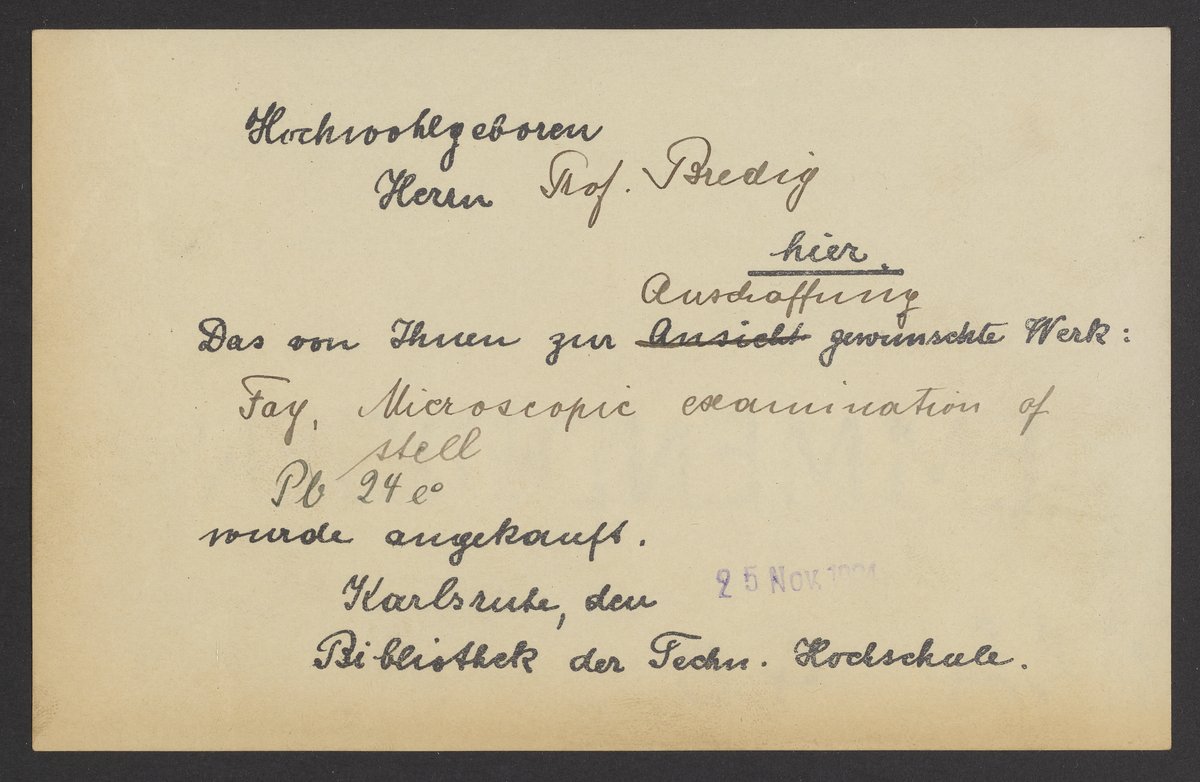 Hochwohlgeboren
Herrn Prof. Bredig
hier.
Anschaffung
Das von Ihnen zur Ansicht gewünschte Werk:
Fay, Microscopic examination of
stell
Pb 24 e°
wurde angekauft.
Karlsruhe, den 25 Nov. 1921
Bibliothek der Techn. Hochschule.